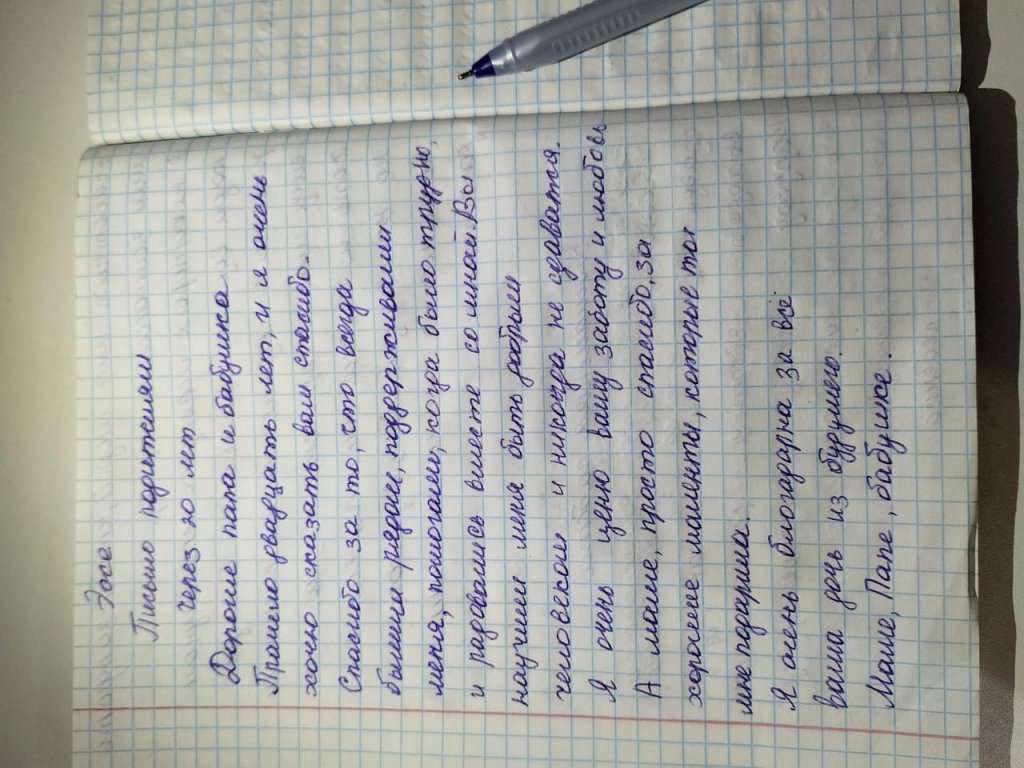 Эссе
Письмо родителям
через 20 лет
Дорогие папа и бабушка
Прошло двадцать лет, и я очень
хочю сказать вам спасибо.
Спасибо за то, что всегда
были рядом, поддерживали
меня, помогали, когда было трудно,
и радовались вместе со мной. Вы
научили меня быть добрым
человеком и никогда не сдаватся.
Я очень ценю вашу заботу и любовь
А маме, просто спасибо, за
хорошие моменты, которые ты
мне подарила.
Я очень благодарна за всё
ваша дочь из будущего.
Маме, Папе, бабушке.